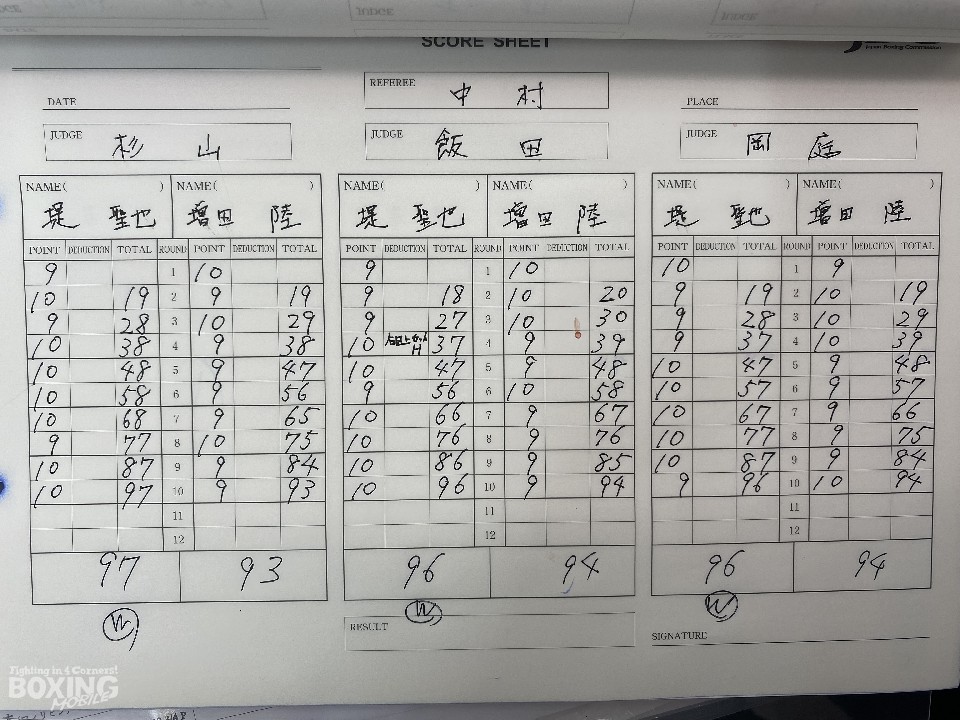 JUDGE
JUDGE
JUDGE
SCORE SHEET
Japan Boxing Commission
DATE
REFEREE 中村
PLACE
JUDGE 杉山
JUDGE 飯田
JUDGE 岡庭
NAME( ) NAME( ) NAME( ) NAME( ) NAME( ) NAME( )
堤 聖也 増田 陸 堤 聖也 増田 陸 堤 聖也 増田 陸
POINT DEDUCTION TOTAL ROUND POINT DEDUCTION TOTAL POINT DEDUCTION TOTAL ROUND POINT DEDUCTION TOTAL POINT DEDUCTION TOTAL ROUND POINT DEDUCTION TOTAL
9 1 10 9 1 10 10 1 9
10 19 2 9 19 9 18 2 10 20 9 19 2 10 19
9 28 3 10 29 9 27 3 10 30 9 28 3 10 29
10 38 4 9 38 10 37 4 9 39 9 37 4 10 39
10 48 5 9 47 10 47 5 9 48 10 47 5 9 48
10 58 6 9 56 9 56 6 10 58 10 57 6 9 57
10 68 7 9 65 10 66 7 9 67 10 67 7 9 66
9 77 8 10 75 10 76 8 9 76 10 77 8 9 75
10 87 9 9 84 10 86 9 9 85 10 87 9 9 84
10 97 10 9 93 10 96 10 9 94 9 96 10 10 94
11 11 11
12 12 12
97 93 96 94 96 94
W W W
RESULT
SIGNATURE
Fighting in 4 Corners!
BOXING
MOBILE